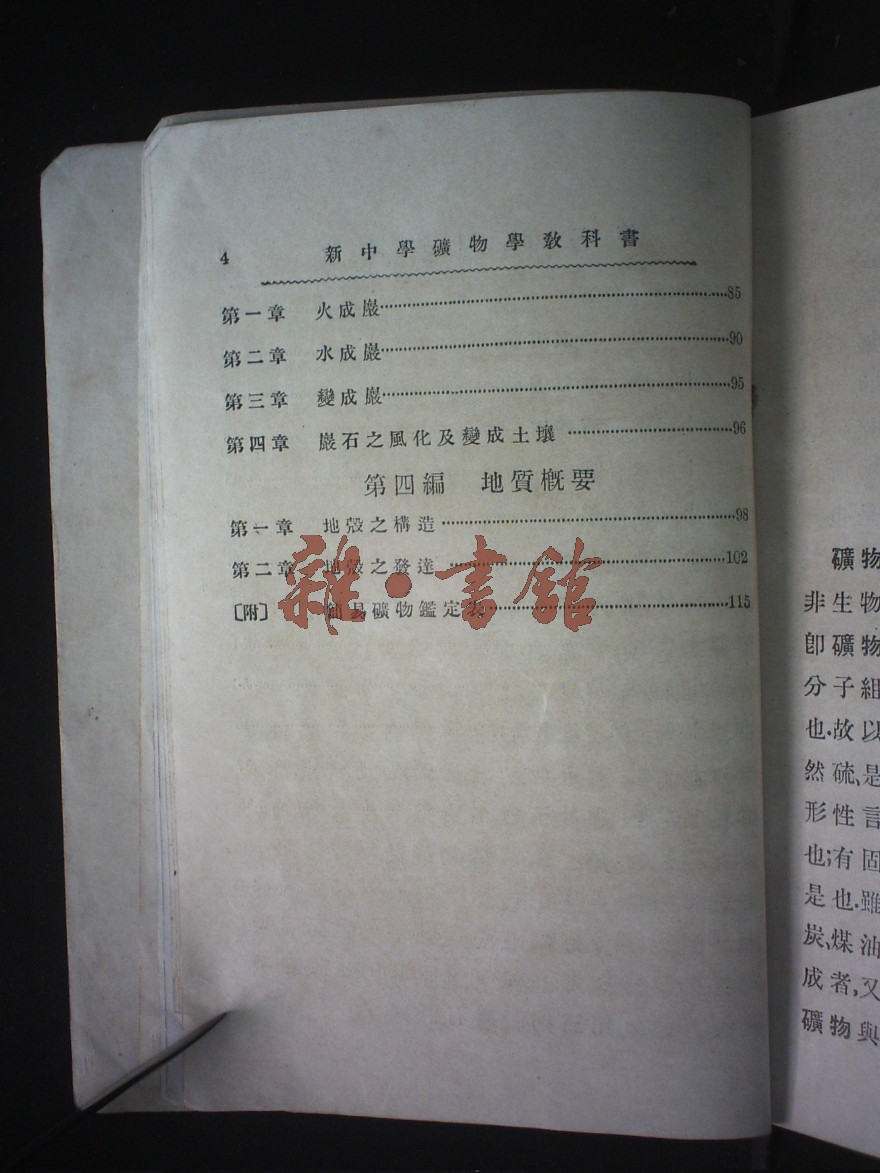 4 新中學礦物學教科書
第一章 火成巖……85
第二章 水成巖……90
第三章 變成巖……95
第四章 巖石之風化及變成土壤……96
第四編 地質概要
第一章 地殼之構造……98
第二章 地殼之發達……102
〔附〕 簡易礦物鑑定表……115
雜·書館
礦物
非生物
卽礦物
分子組
也.故以
然硫、是
形性言
也;有固
是也.雖
炭、煤油
成者,又
礦物與